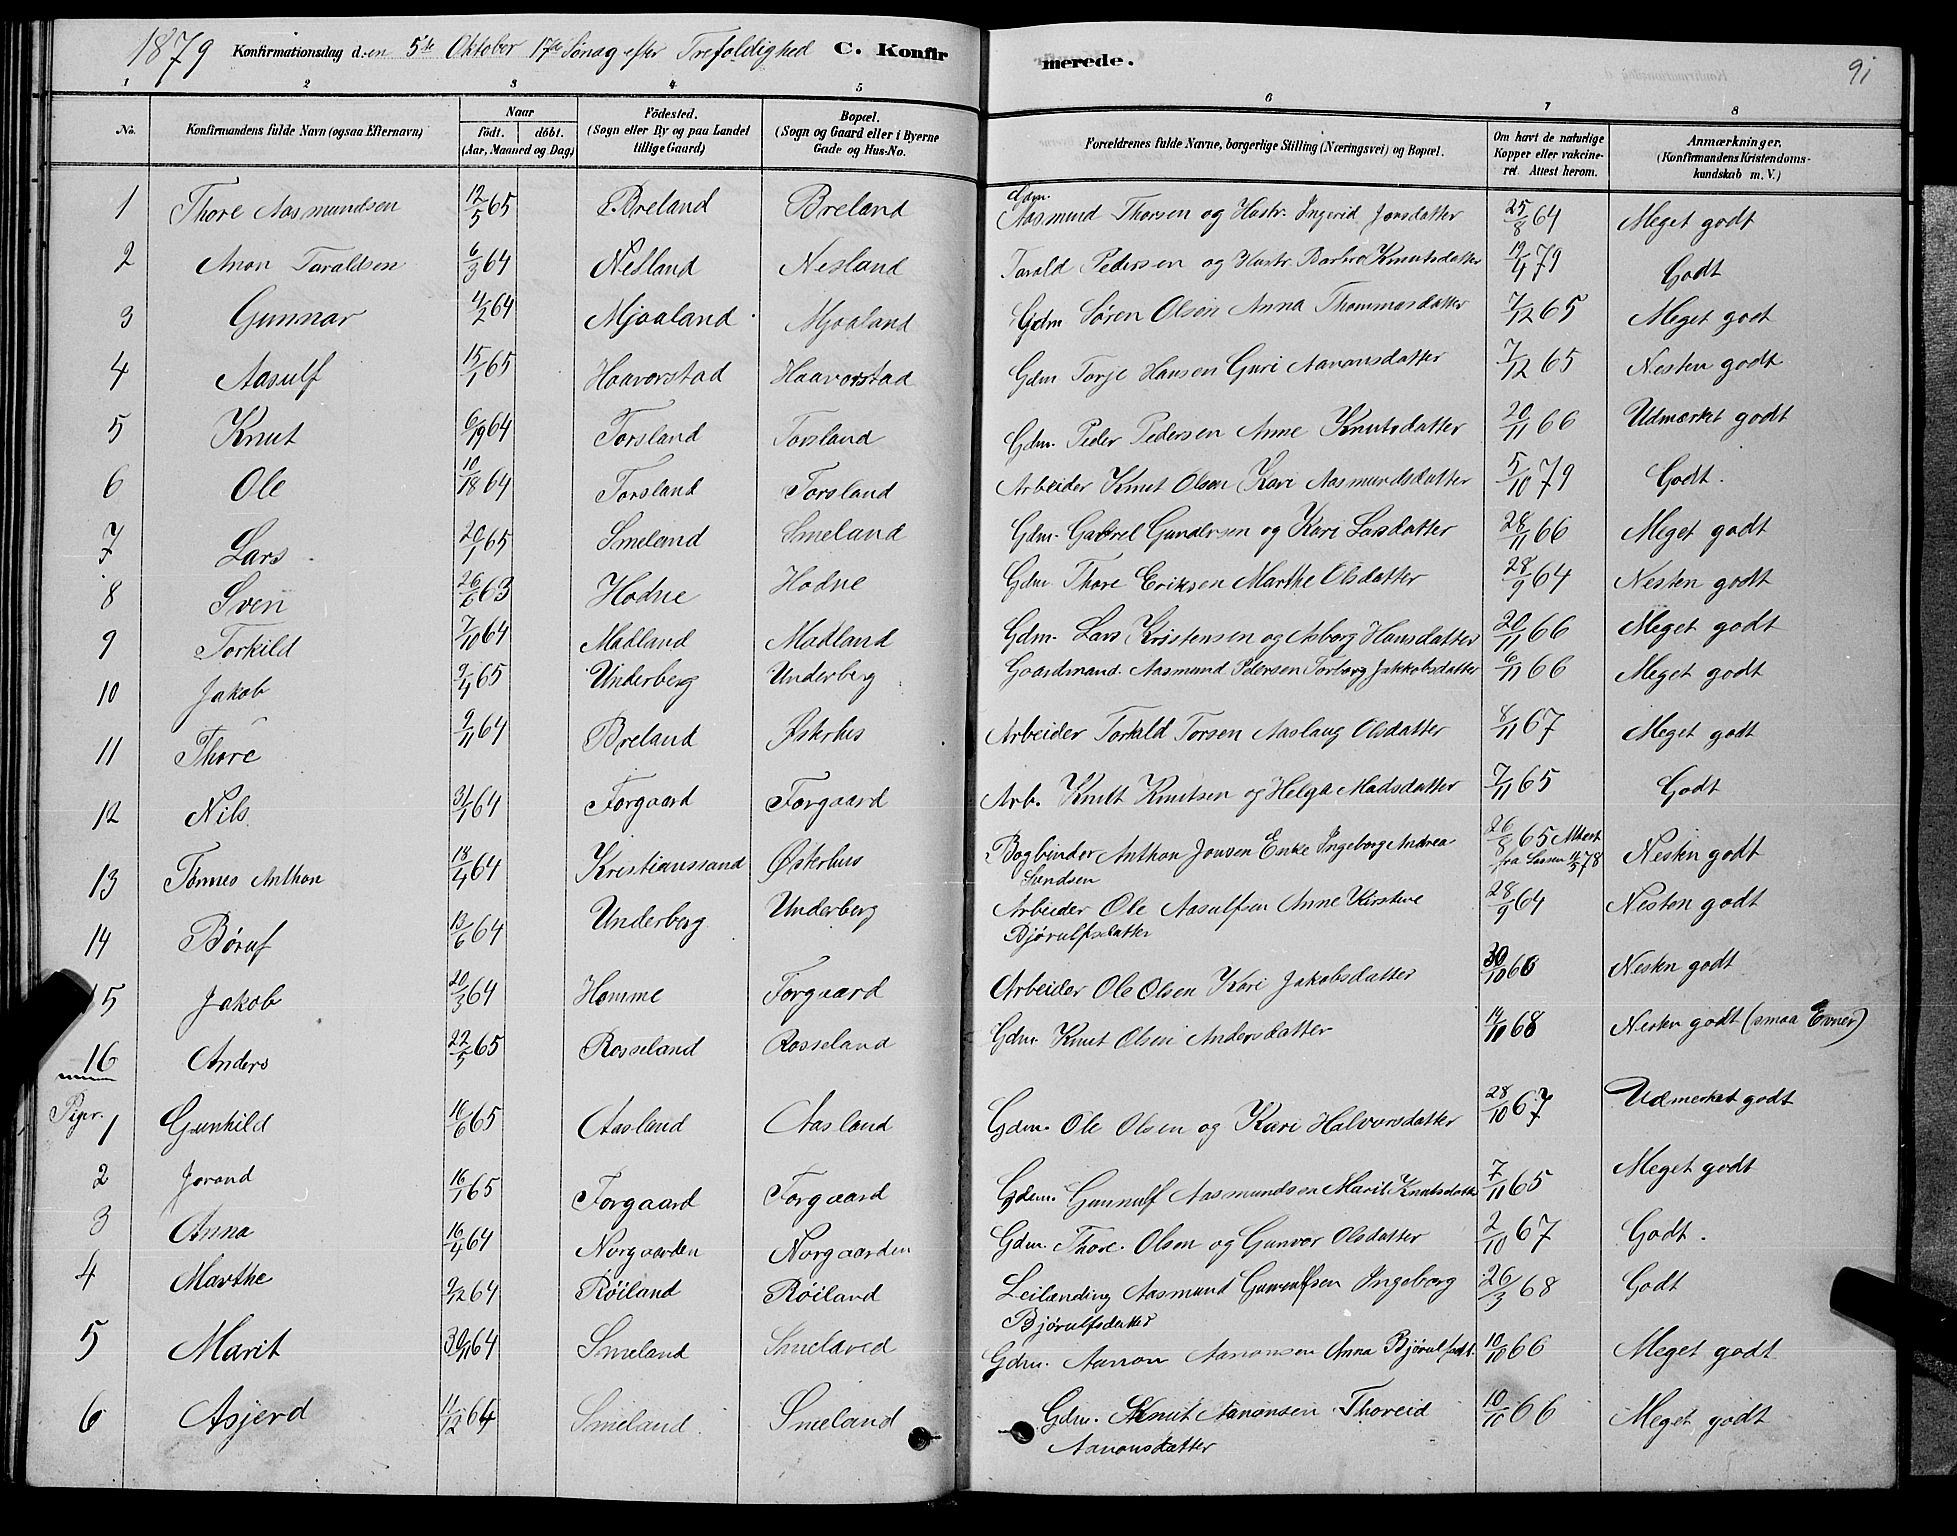 1879 Konfirmationsdag den 5te Oktober 17de Sönag efter Trefoldighed C. Konfir merede. 91
1 2 3 4 5 6 7 8
No. Konfirmandens fulde Navn (ogsaa Efternavn) Naar födt. döbt. (Aar, Maaned og Dag) Födested. (Sogn eller By og paa Landet tillige Gaard) Bopæl. (Sogn og Gaard eller i Byerne Gade og Hus-No. Forældrenes fulde Navne, borgerlige Stilling (Næringsvei) og Bopæl. Om havt de naturlige Kopper eller vakcineret. Attest herom. Anmærkninger. (Konfirmandens Kristendomskundskab m. V.)
1 Thore Aasmundsen 12/5 65 Breland Breland Gdm. Aasmund Thorsen og Hustr. Ingerid Jonsdatter 25/8 64 Meget godt
2 Anon Taraldsen 6/3 64 Nesland Nesland Tarald Pedersen og Hustr. Barbro Knutsdatter 12/4 79 Godt
3 Gunnar 4/2 64 Mjaaland Mjaaland Gdm. Sören Olsen Anna Thommasdatter 7/12 65 Meget godt
4 Aasulf 15/1 65 Haavorstad Haavorstad Gdm Torje Hansen Guri Aanonsdatter 7/12 65 Nesten godt
5 Knut 6/19 64 Torsland Torsland Gdm. Peder Pedersen Anne Knutsdatter 20/11 66 Udmærket godt
6 Ole 10/18 64 Torsland Torsland Arbeider Knut Olsen Kari Aasmundsdatter 5/10 79 Godt.
7 Lars 20/1 65 Smeland Smeland Gdm. Gabrel Gundersen og Kari Larsdatter 28/11 66 Meget godt
8 Sven 26/6 63 Hodne Hodne Gdm. Thore Eriksen Marthe Olsdatter 28/9 64 Nesten godt
9 Torkild 7/10 64 Madland Madland Gdm. Lars Kristensen og Asborg Hansdatter 20/11 66 Meget godt
10 Jakob 9/4 65 Underberg Underberg Gaardmand Aasmund Pedersen Torborg Jakkobsdatter 6/11 66 Meget godt
11 Thore 9/11 64 Breland Østerhus Arbeider Torkild Torsen Aaslaug Olsdatter 8/11 67 Meget godt
12 Nils 31/1 64 Forgaard Forgaard Arb. Knut Knutsen og Helga Madsdatter 7/11 65 Godt
13 Tønnes Anthon 18/4 64 Kristianssand Østerhus Bogbinder Anthon Jonsen Enke Ingeborg Andrea 26/8 65 Attest Nesten godt
Svendsen fra 78
14 Børuf 13/6 64 Underberg Underberg Arbeider Ole Aasulfsen Anne Kirstine 28/9 64 Nesten godt
Bjørulfsdatter
15 Jakob 20/3 64 Homme Forgaard Arbeider Ole Olsen Kari Jakobsdatter 30/10 60 Nesten godt
16 Anders 22/5 65 Rosseland Rosseland Gdm. Knut Olsen Andersdatter 14/10 68 Nesten godt (smaa Evner)
Piger.
1 Gunhild 16/6 65 Aasland Aasland Gdm. Ole Olsen og Kari Halvorsdatter 28/10 67 Udmerket godt
2 Jorand 16/1 65 Forgaard Forgaard Gdm. Gunnulf Aasmundsen Marit Knutsdatt 7/11 65 Meget godt
3 Anna 16/4 64 Norgaarden Norgaarden Gdm. Thore Olsen og Gunvor Olsdatter 2/10 67 Godt.
4 Marthe 9/12 64 Røiland Røiland Leilending Aasmund Gunnulfsen Ingeborg 26/3 68 Godt
Bjørulfsdatter
5 Marit 30/11 64 Smeland Smeland Gdm. Aanon Aanonsen Anna Bjørulfsdt. 10/10 66 Meget godt
6 Asjerd 11/12 64 Smeland Smeland Gdm. Knut Aanonsen Thoreid 10/10 66 Meget godt
Aanonsdatter